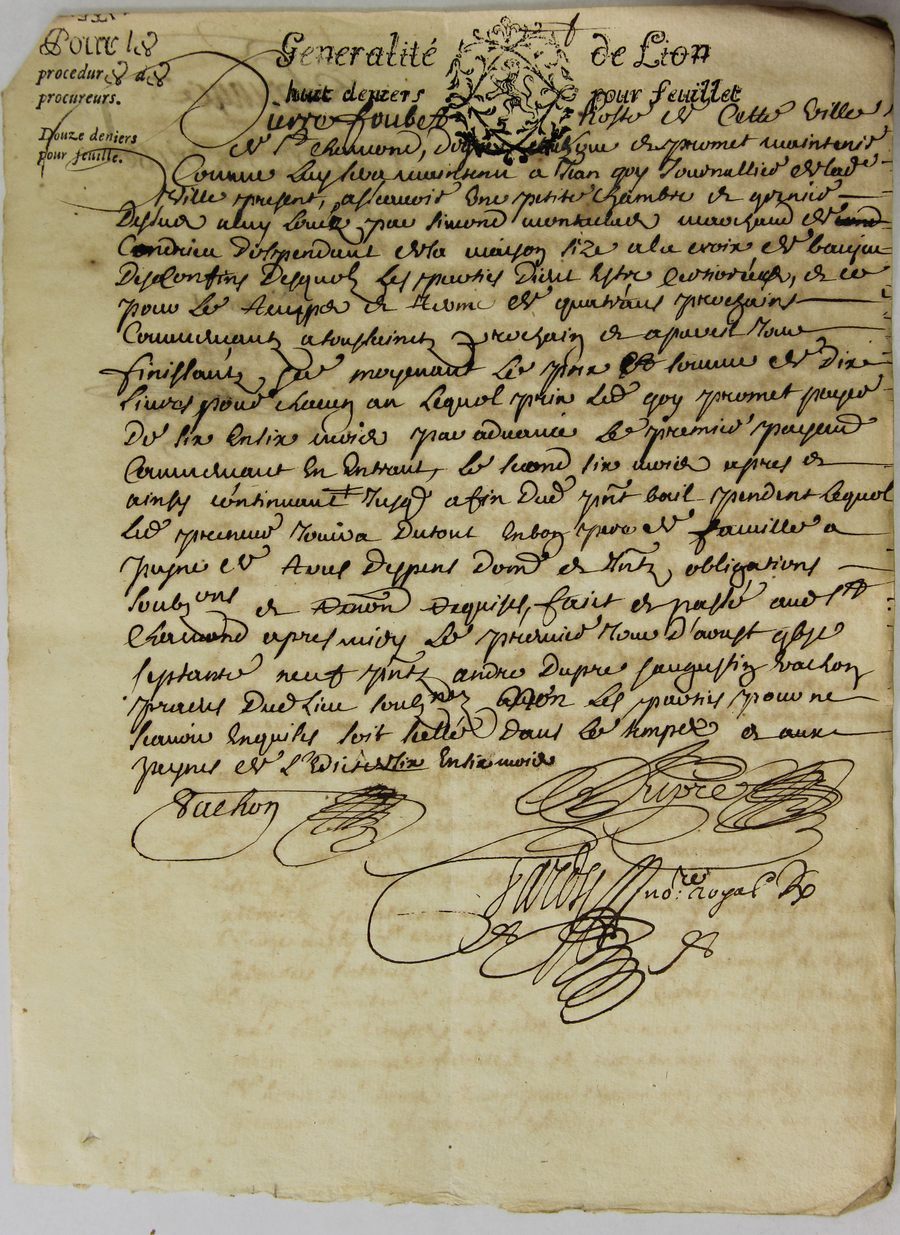 Pour les
procedures des
procureurs.
Douze deniers
pour feuille.
Generalité de Lion
huit deniers pour feuillet
Pierre foubert hoste de Cette ville
de St Chamond, de et promet maintenir
Comme sera maintenu a Jean goy Journallier de lade
ville present, ascavoir une petite chambre et grenier
Dessus a luy Louez par simond marchand de
Condrieu Dependant de la maison size a la croix de
Desconfins Desquels Les parties Dient estre et ce
pour Le temps et terme de quatre ans prochains
Commencant a toussaincts prochain et a pareil Jour
finissant, moyenant Le prix et somme de Dix
Livres pour chacun an Lequel prix Led goy promet payer
De six En six mois par advance Le premier payement
Commencant En Entrant, Le second six mois apres et
ainsy continuant Jusq a fin Dud pnt bail pendent Lequel
Led preneur Jouira Du tout En bon pere de famille a
peyne de tous Despens Dom et Intz obligations
soubzons et Requises, faict et passé aud St
Chamond apres midy Le premier Jour d'aoust
septante neuf pntz andre Dupre augustin vachon
praciens Dud Lieu soubznez non Les parties pour ne
scavoir Enquises soit scellé Dans Le temps et aux
peynes de L'Edict six En six mois
Vachon
Dupré
no:re Royal